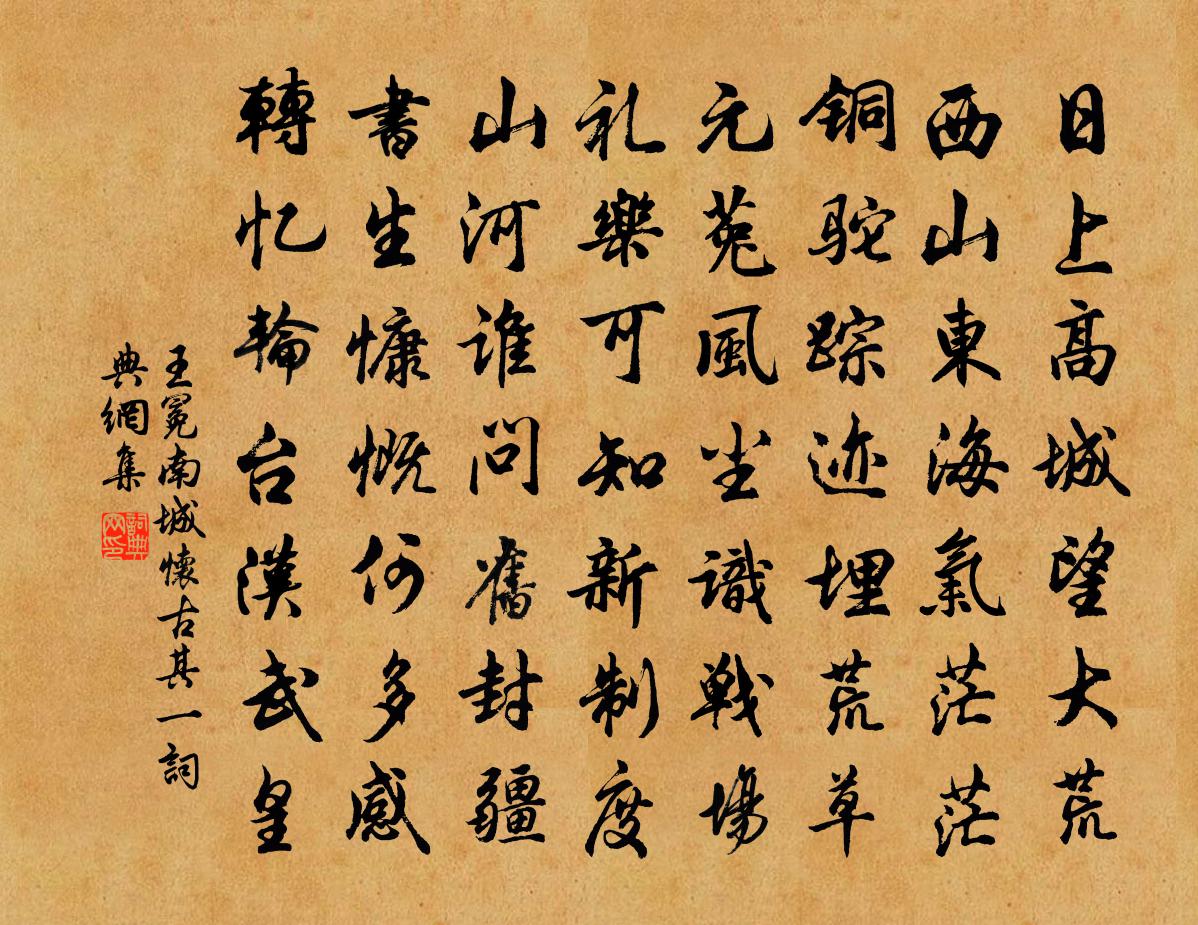 日上高城望大荒
西山東海氣茫茫
铜驼踪迹埋荒草
元菟風尘識戦場
礼樂可知新制度
山河谁问舊封疆
書生慷慨何多感
轉忆輪台漢武皇
王冕南城懷古其一詞
典網集
詞典网印